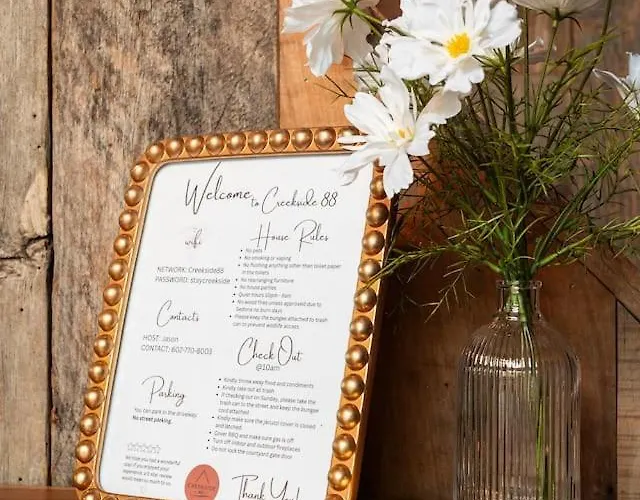 Welcome to Creekside 88
wifi
NETWORK: Creekside88
PASSWORD: staycreekside
Contacts
HOST: Jason
CONTACT: 602-770-8003
Parking
You can park in the driveway.
No street parking.
We hope you had a wonderful
stay! If you enjoyed your
experience, a 5 star review
would mean so much to us.
House Rules
No pets
No smoking or vaping
No flushing anything other than toilet paper
in the toilets
No rearranging furniture
No house parties
Quiet hours 10pm - 8am
No wood fires unless approved due to
Sedona no burn days
Please keep the bungee attached to trash
can to prevent wildlife access.
Check Out
@10am
Kindly throw away food and condiments
Kindly take out all trash
If checking out on Sunday, please take the
trash can to the street and keep the bungee
cord attached
Kindly make sure the jacuzzi cover is closed
and latched.
Cover BBQ and make sure gas is off
Turn off indoor and outdoor fireplaces
Do not lock the courtyard gate door
Thank You!
CREEKSIDE